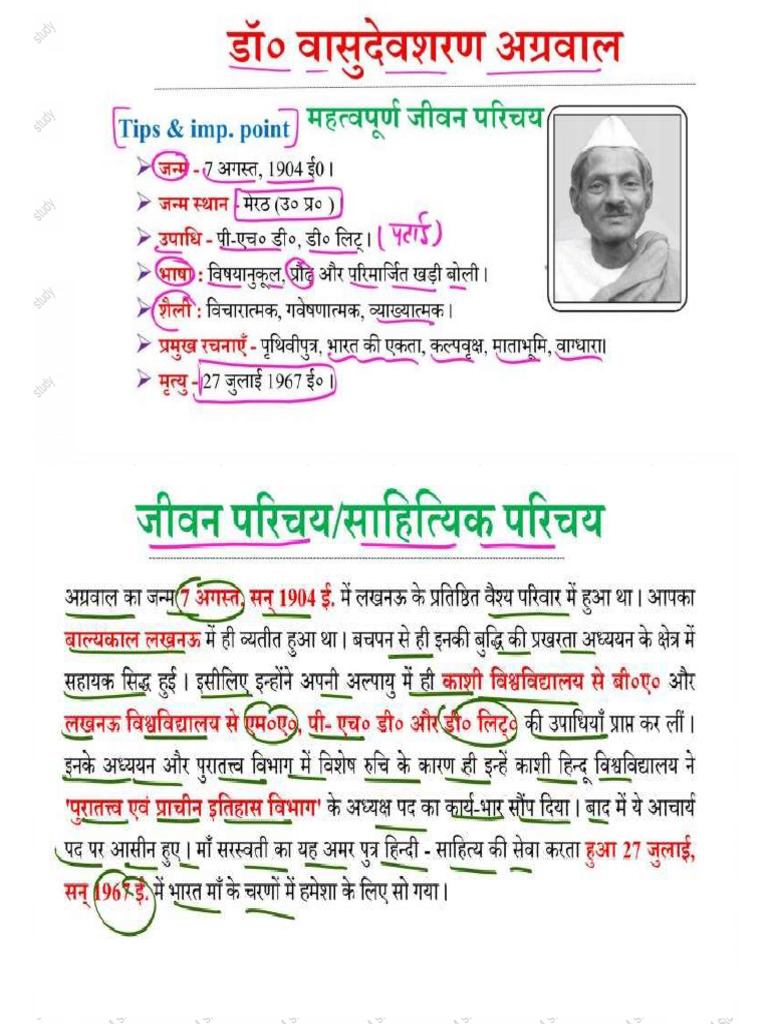 डॉ० वासुदेवशरण अग्रवाल
Tips & imp. point महत्वपूर्ण जीवन परिचय
जन्म - 7 अगस्त, 1904 ई0।
जन्म स्थान - मेरठ (उ० प्र० )
उपाधि - पी-एच० डी०, डी० लिट्। (पढाई)
भाषा : विषयानुकूल, प्रौढ़ और परिमार्जित खड़ी बोली।
शैली : विचारात्मक, गवेषणात्मक, व्याख्यात्मक।
प्रमुख रचनाएँ - पृथिवीपुत्र, भारत की एकता, कल्पवृक्ष, माताभूमि, वाग्धारा।
मृत्यु - 27 जुलाई 1967 ई०।
study
study
study
study
study
जीवन परिचय/साहित्यिक परिचय
अग्रवाल का जन्म 7 अगस्त, सन् 1904 ई. में लखनऊ के प्रतिष्ठित वैश्य परिवार में हुआ था। आपका
बाल्यकाल लखनऊ में ही व्यतीत हुआ था। बचपन से ही इनकी बुद्धि की प्रखरता अध्ययन के क्षेत्र में
सहायक सिद्ध हुई। इसीलिए इन्होंने अपनी अल्पायु में ही काशी विश्वविद्यालय से बी०ए० और
लखनऊ विश्वविद्यालय से एम०ए०, पी- एच० डी० और डी० लिट्० की उपाधियाँ प्राप्त कर लीं।
इनके अध्ययन और पुरातत्त्व विभाग में विशेष रुचि के कारण ही इन्हें काशी हिन्दू विश्वविद्यालय ने
'पुरातत्त्व एवं प्राचीन इतिहास विभाग' के अध्यक्ष पद का कार्य-भार सौंप दिया। बाद में ये आचार्य
पद पर आसीन हुए। माँ सरस्वती का यह अमर पुत्र हिन्दी - साहित्य की सेवा करता हुआ 27 जुलाई,
सन् 1967 ई. में भारत माँ के चरणों में हमेशा के लिए सो गया।